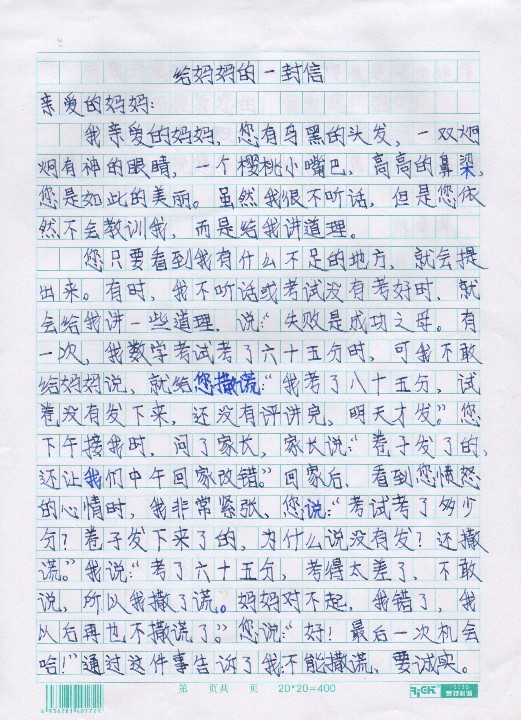 给妈妈的一封信
亲爱的妈妈:
我亲爱的妈妈,您有乌黑的头发,一双炯
炯有神的眼睛,一个樱桃小嘴巴,高高的鼻梁,
您是如此的美丽。虽然我很不听话,但是您依
然不会教训我,而是给我讲道理。
您只要看到我有什么不足的地方,就会提
出来。有时,我不听话或考试没有考好时,就
会给我讲一些道理,说:“失败是成功之母。有
一次,我数学考试考了六十五分时,可我不敢
给妈妈说,就给您撒谎:“我考了八十五分,试
卷没有发下来,还没有评讲完,明天才发。”您
下午接我时,问了家长,家长说:“卷子发了的,
还让我们中午回家改错。”回家后,看到您愤怒
的心情时,我非常紧张,您说:“考试考了多少
分?卷子发下来了的,为什么说没有发?还撒
谎。”我说:“考了六十五分,考得太差了,不敢
说,所以我撒了谎。妈妈对不起,我错了,我
以后再也不撒谎了。”您说:“好!最后一次机会
哈!”通过这件事告诉了我不能撒谎,要诚实。
第 页共 页 20*20=400
6936281401221